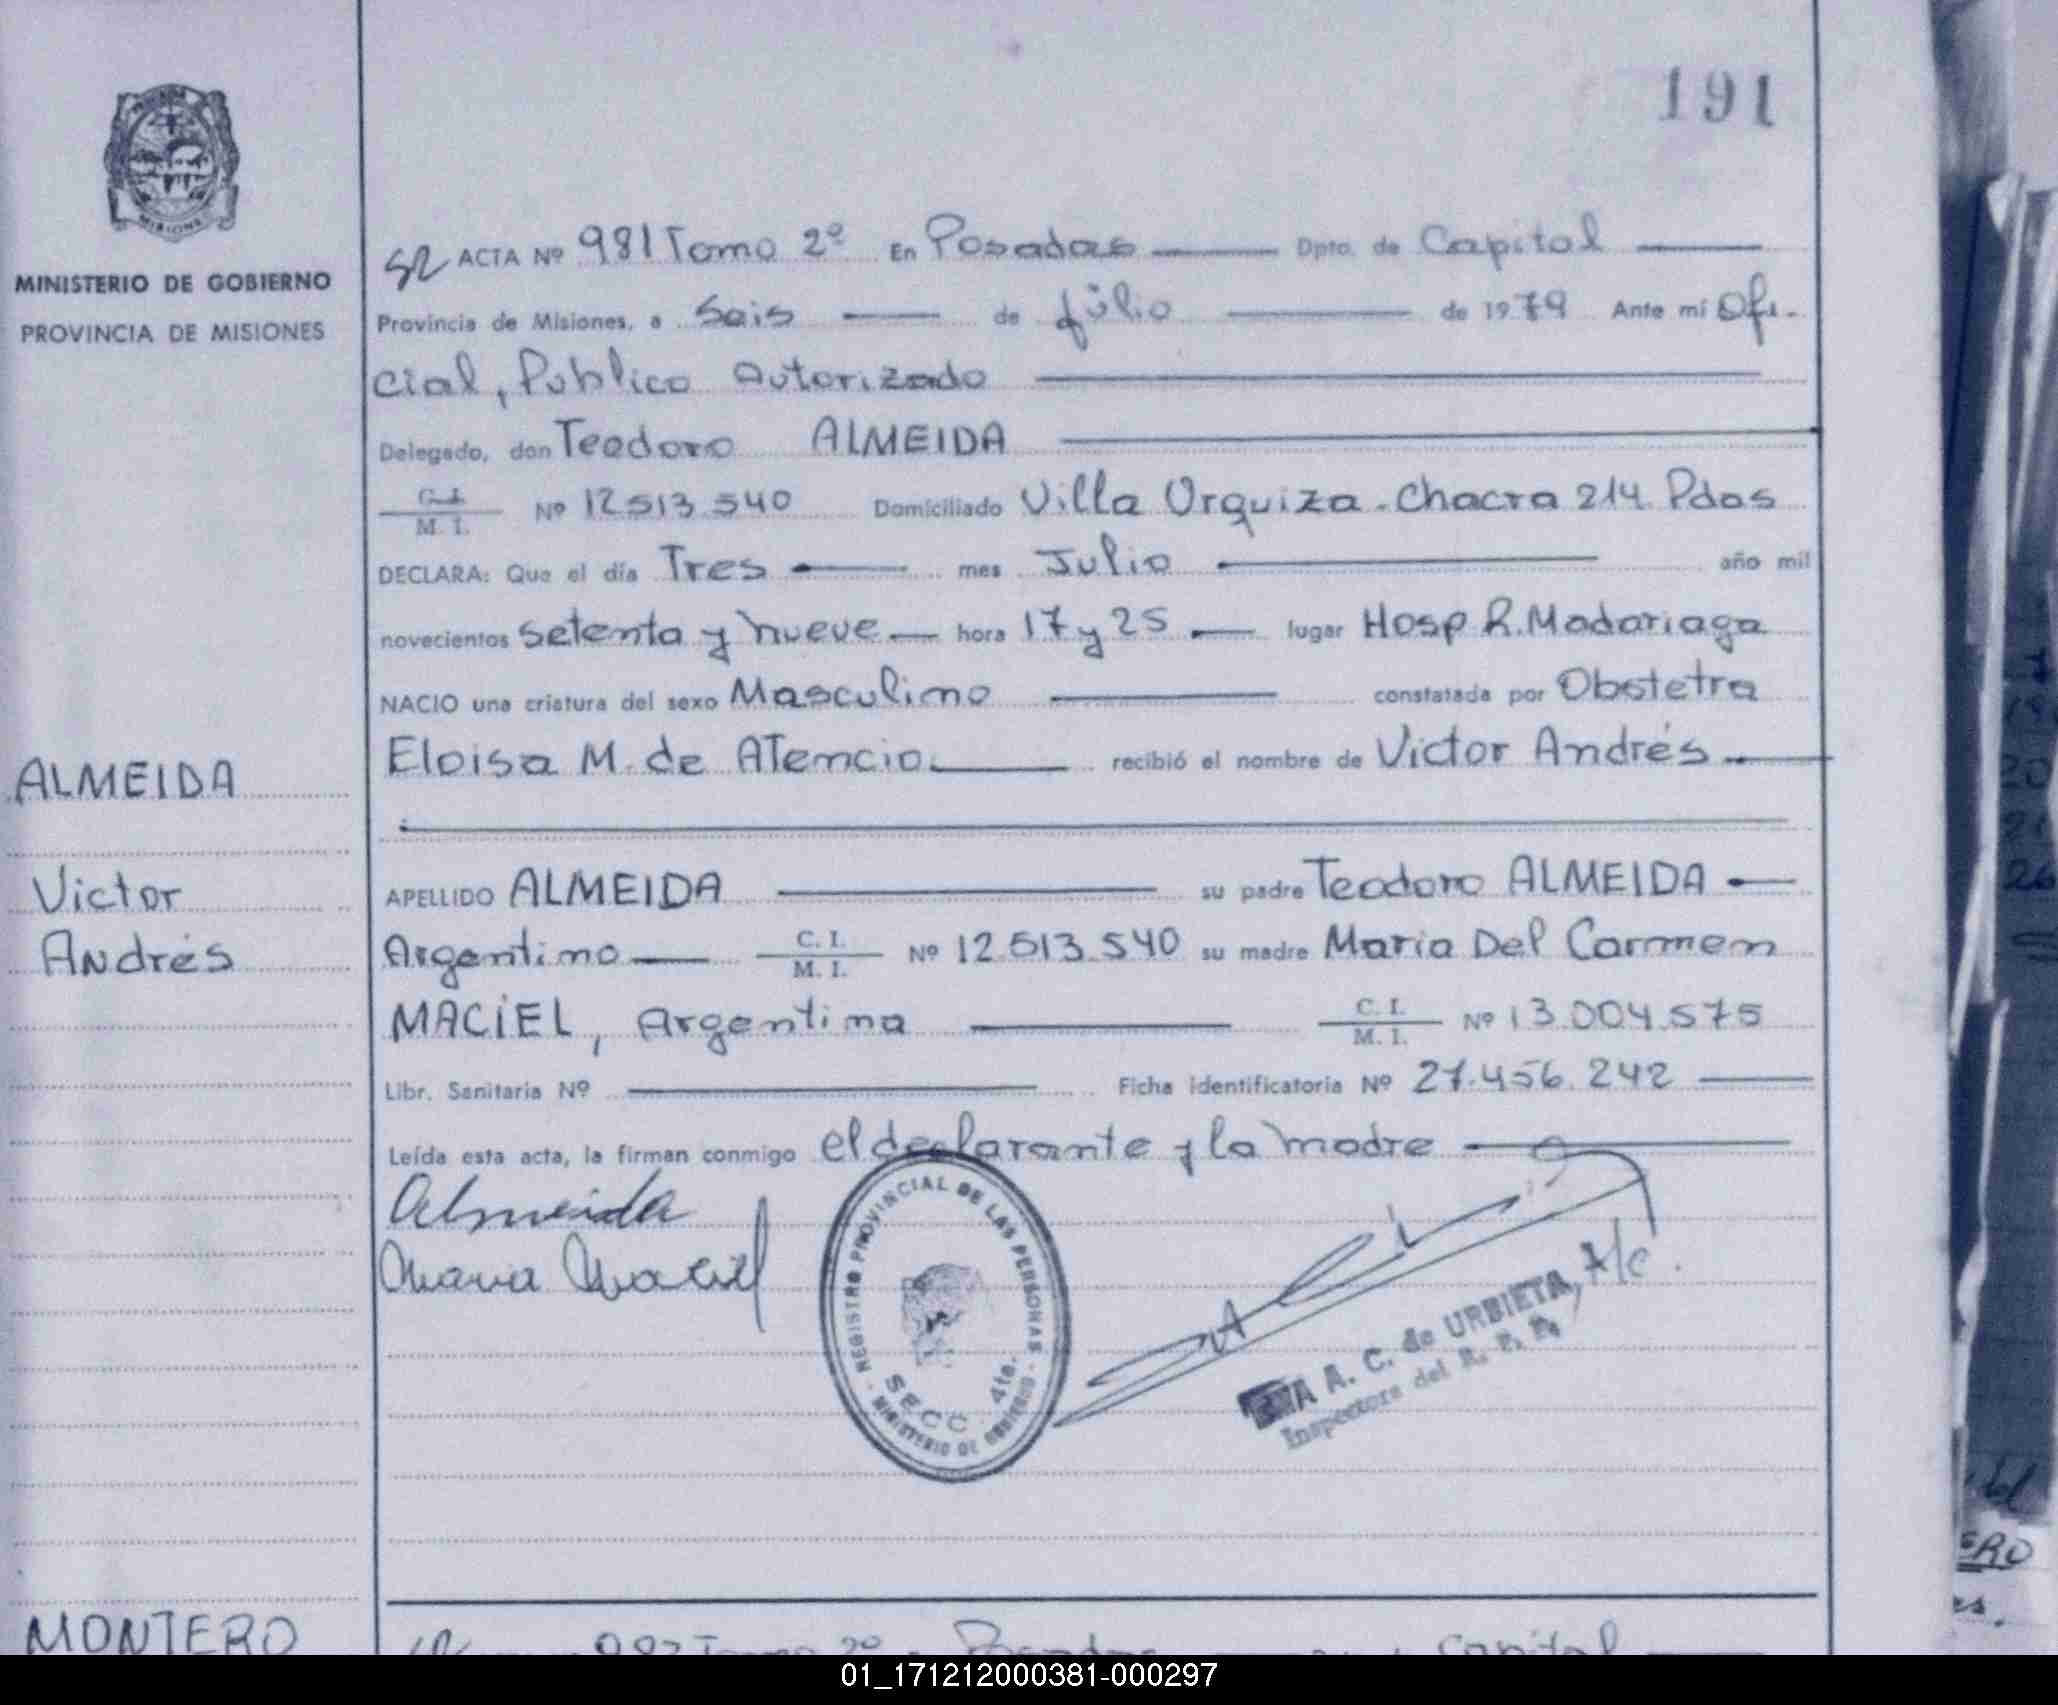 191
MISIONES
MINISTERIO DE GOBIERNO
PROVINCIA DE MISIONES
ALMEIDA
Victor
Andrés
MONTERO
SR ACTA Nº 981 Tomo 2º En Posadas Dpto. de Capital
Provincia de Misiones, a Seis de júlio de 1979 Ante mí Ofi-
cial, Público Autorizado
Delegado, don Teodoro ALMEIDA
C.I. M.I. Nº 12.513.540 Domiciliado Villa Urquiza - Chacra 214. Pdas
DECLARA: Que el día Tres mes Julio año mil
novecientos setenta y nueve hora 17 y 25 lugar Hosp R. Madariaga
NACIO una criatura del sexo Masculino constatada por Obstetra
Eloisa M. de ATencio. recibió el nombre de Victor Andrés
APELLIDO ALMEIDA su padre Teodoro ALMEIDA
Argentino C.I. M.I. Nº 12.513.540 su madre Maria Del Carmen
MACIEL, Argentina C.I. M.I. Nº 13.004.575
Libr. Sanitaria Nº Ficha identificatoria Nº 27.456.242
Leída esta acta, la firman conmigo el declarante y la madre
Almeida
Maria Maciel
REGISTRO PROVINCIAL DE LAS PERSONAS
SECC. 4ta.
MINISTERIO DE GOBIERNO
A. C. de URBIETA, A/C.
Inspectora del R. P. P.
982 Tomo 2º Posadas Capital
01_171212000381-000297